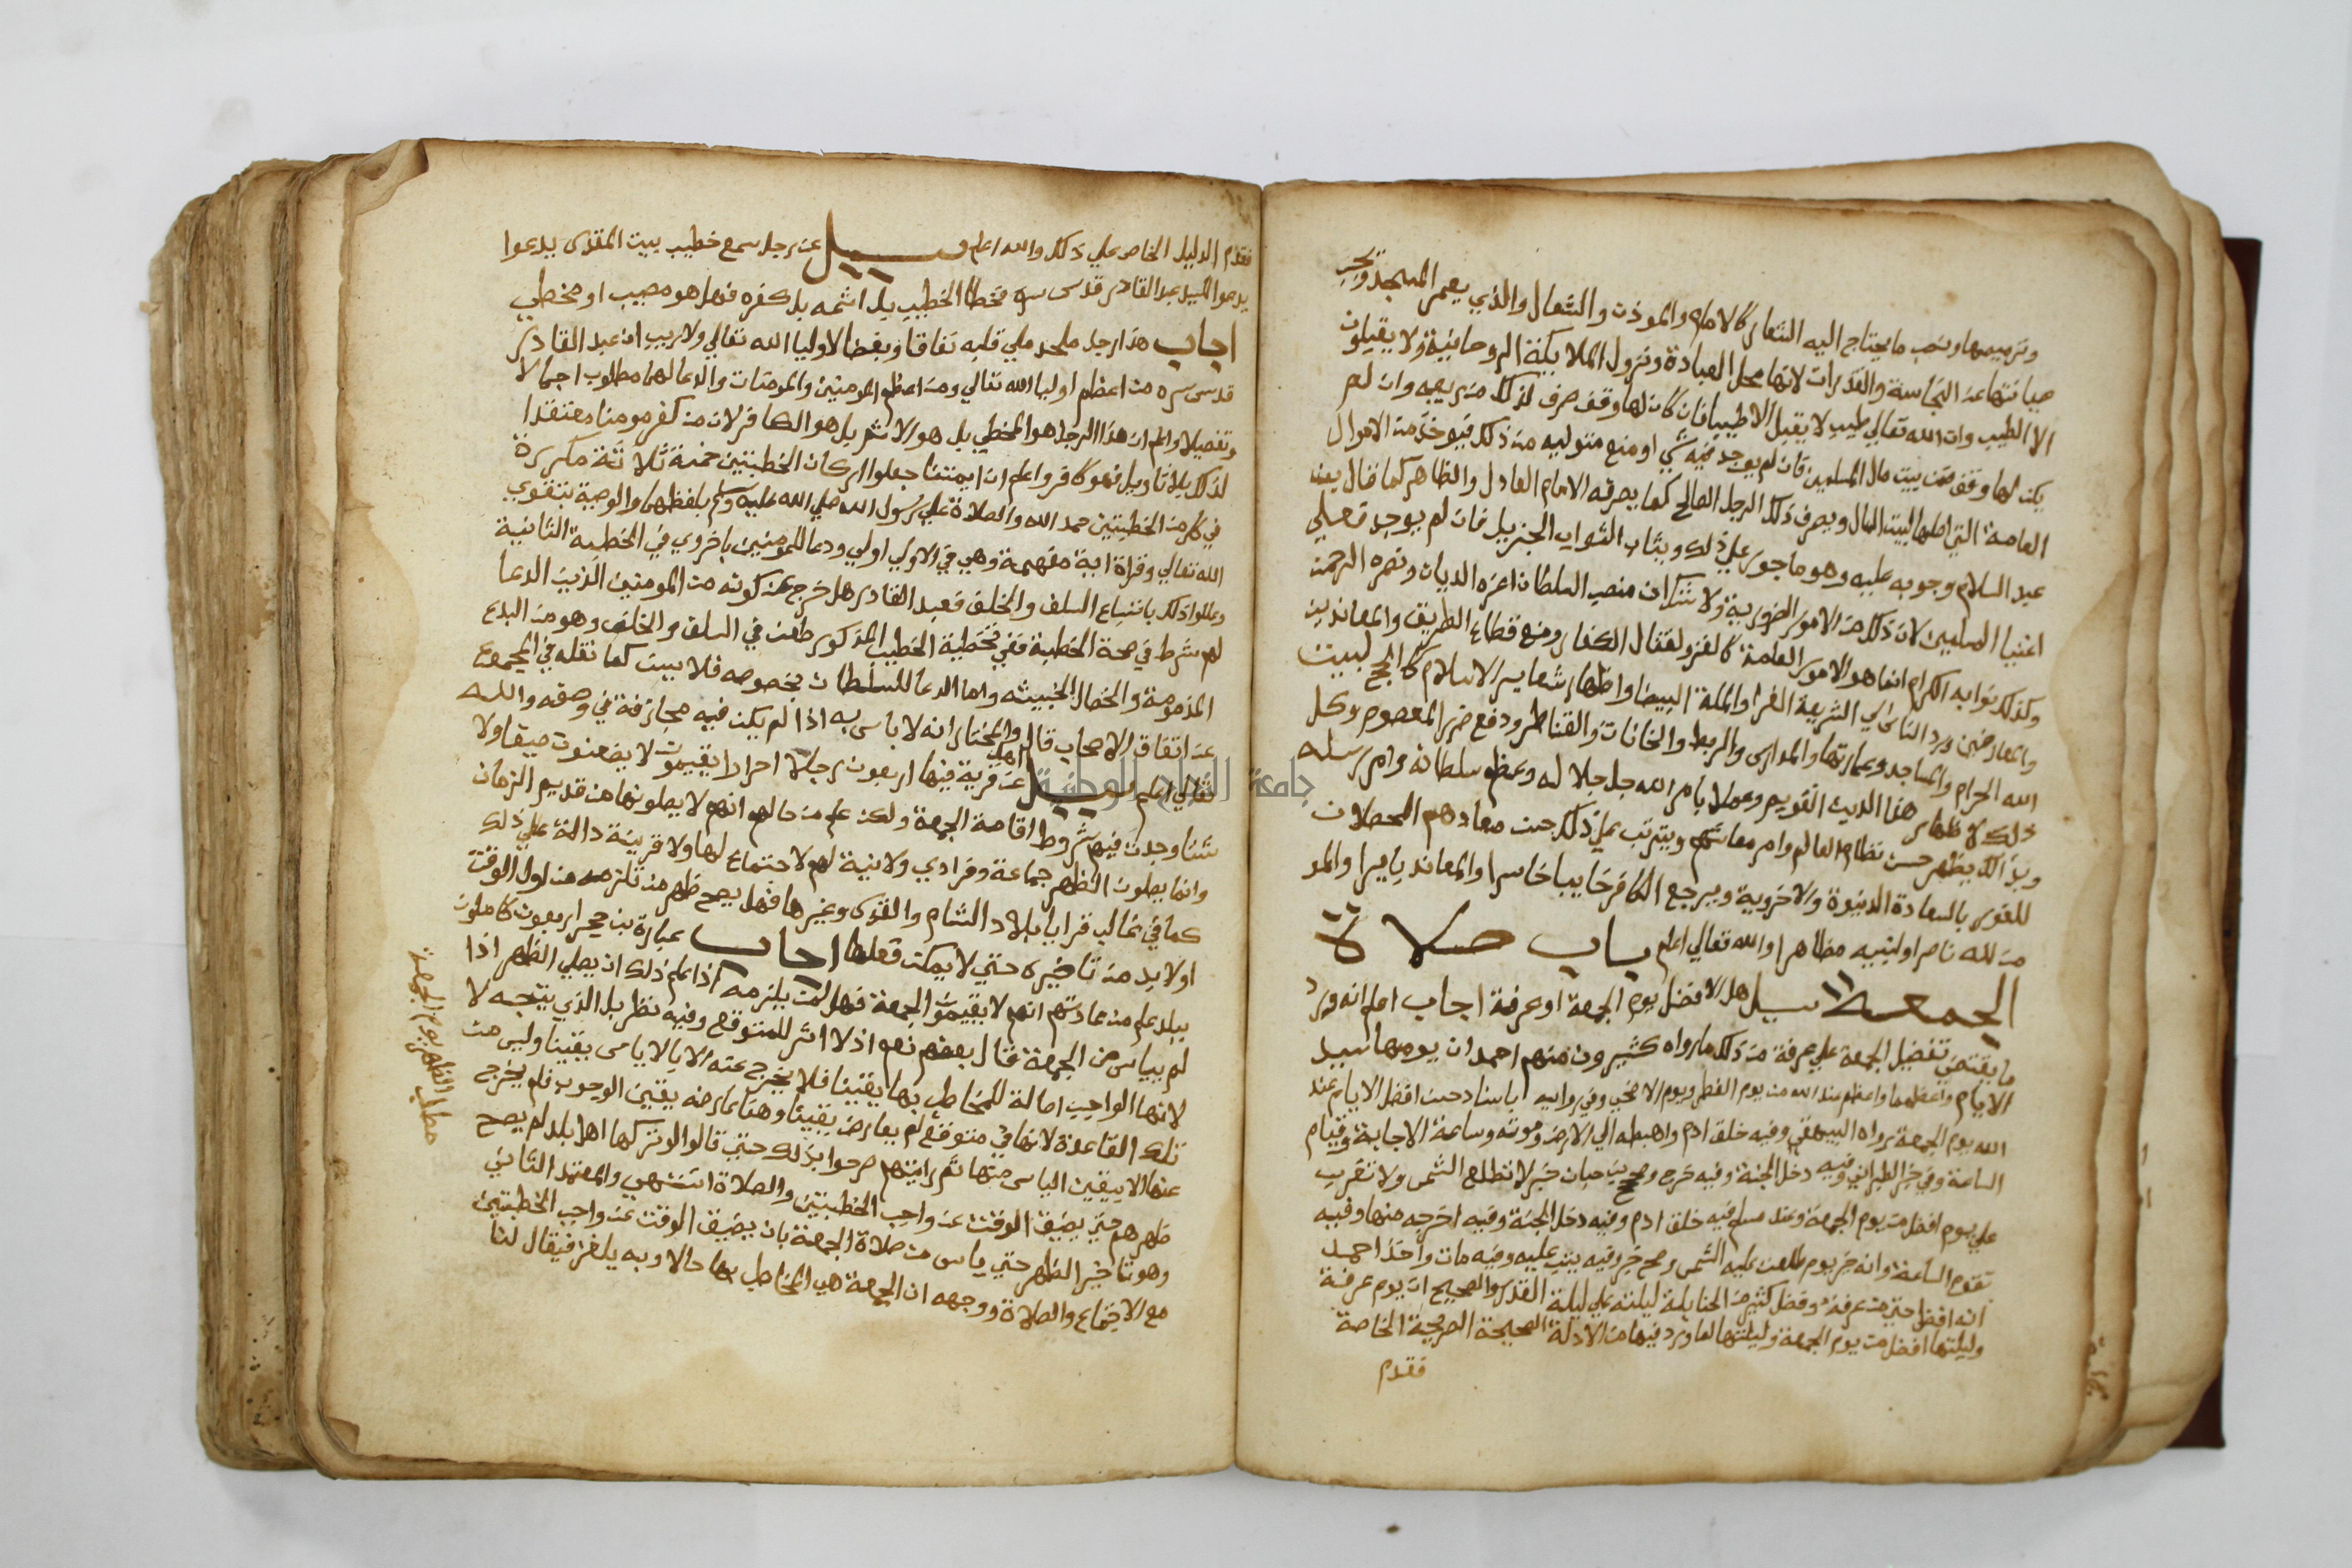 وترميمها ونصب ما يحتاج اليه الشعاير كالامام والموذن والشعال والذي يعمر المسجد
صيانتها عن النجاسة والقذرات لانها محل العبادة ونزول الملايكة الروحانية ولا يقبلون
الا الطيب وان الله تعالي طيب لا يقبل الا طيبا فان كان لها وقف صرف لذلك من ريعه وان لم
يكن لها وقف فمن بيت مال المسلمين فان لم يوجد فيه شي او منع متوليه من ذلك فيوخذ من الاموال
العامة التي اصلها لبيت المال ويصرف ذلك الرجل الصالح كما يصرفه الامام العادل والظاهر كما قال بعض
عبد السلام وجوبه عليه وهو ماجور علي ذلك ويثاب الثواب الجزيل فان لم يوجد فعلي
اغنيا المسلمين لان ذلك من الامور الضرورية ولا شك ان منصب السلطان اعزه الديان ونصره الرحمن
وكذلك نوابه الكرام انما هو الامور العامة كالغزو لقتال الكفار ومنع قطاع الطريق والمعاندين
والمعارضين ورد الناس الي الشريعة الغرا والملة البيضا واظهار شعاير الاسلام كالحج لبيت
الله الحرام والمساجد وعمارتها والمدارس والربط والخانات والقناطر ودفع ضرر المعصوم وكل
ذلك لاظهار هذا الدين القويم وعملا بامر الله جل جلاله وعظم سلطانه وامر رسله
وبذالك يظهر حسن نظام العالم وامر معاشهم ويترتب علي ذلك حسن معادهم المحصلان
للفوز بالسعادة الدنيوة والاخروية ويرجع الكافر خايبا خاسرا والمعاند يا ميرا والمو
من لله ناصرا ولنبيه مظاهرا والله تعالي اعلم باب صلاة
الجمعة سيل هل الافضل يوم الجمعة او عرفة اجاب اعلم انه ورد
ما يقتضي تفضيل الجمعة علي عرفة من ذلك ما رواه كثيرون منهم احمد ان يومها سيد
الايام واعظمها واعظم عند الله من يوم الفطر ويوم الاضحي وفي رواية باسناد حسن افضل الايام عند
الله يوم الجمعة رواه البيهقي وفيه خلق ادم واهبطه الي الارض وموته وساعة الاجابة وقيام
الساعة وفي خبر الطبراني وفيه دخل الجنة وفيه خرج وصحح بن حبان خبر لا تطلع الشمس ولا تغرب
علي يوم افضل من يوم الجمعة وعند مسلم فيه خلق ادم وفيه دخل الجنة وفيه اخرج منها وفيه
تقوم الساعة وانه خير يوم طلعت عليه الشمس وصح خبر وفيه تيب عليه وفيه مات واخذ احمد
انه افضل حتي من عرفة وفضل كثير من الحنابلة ليلته علي ليلة القدر والصحيح ان يوم عرفة
وليلتها افضل من يوم الجمعة وليلتها لما ورد فيها من الادلة الصحيحة الصريحة الخاصة
فقدم
فقدم الدليل الخاص علي ذلك والله اعلم سيل عن رجل سمع خطيب بيت المقدس يدعوا
يدعوا للسيد عبد القادر قدس سره فخطا الخطيب بل اثمه بل كفره فهل هو مصيب او مخطي
اجاب هذا رجل ملحد ملي قلبه نفاقا وبغضا لاوليا الله تعالي ولا ريب ان عبد القادر
قدس سره من اعظم اوليا الله تعالي ومن اعظم المومنين والمومنات والدعا لهما مطلوب اجمالا
وتفصيلا واعلم ان هذا الرجل هو المخطي بل هو الاثم بل هو الكافر لان من كفر مومنا معتقدا
لذلك بلا تاويل فهو كافر واعلم ان ايمتنا جعلوا اركان الخطبتين خمسة ثلاثة مكررة
في كل من الخطبتين حمد الله والصلاة علي رسول الله صلي الله عليه وسلم بلفظهما والوصية بتقوي
الله تعالي وقراة اية مفهمة وهي في الاولي اولي ودعا للمومنين باخروي في الخطبة الثانية
وعللوا ذلك باتباع السلف والخلف فعبد القادر هل خرج عن كونه من المومنين الذين الدعا
لهم شرط في صحة الخطبة ففي تخطية الخطيب المذكور طعن في السلف والخلف وهو من البدع
المذمومة والخصال الخبيثه واما الدعا للسلطان بخصوصه فلا يسن كما نقله في المجموع
عن اتفاق الاصحاب قال والمختار انه لا باس به اذا لم يكن فيه مجازفة في وصفه والله
تعالي اعلم سيل عن اهل قرية فيها اربعون رجلا احرارا يقيمون لا يضعنون صيفا ولا
شتا وجدت فيهم شروط اقامة الجمعة ولكن علم من حالهم انهم لا يصلونها من قديم الزمان
وانما يصلون الظهر جماعة وفرادي ولا نية لهم لاجتماع لها ولا قرينة دالة علي ذلك
كما في غالب قرايا بلاد الشام والقدس وغيرها فهل يصح ظهر من تلزمه من اول الوقت
اولا بد من تاخيره حتي لا يمكن فعلها اجاب عبارة بن حجر اربعون كاملون
ببلد علم من عادتهم انهم لا يقيمون الجمعة فهل لمن يلزمه اذا علم ذلك ان يصلي الظهر اذا
لم يياس من الجمعة قال بعضهم نعم اذ لا اثر للمتوقع وفيه نظر بل الذي يتجه لا
لانها الواجب اصالة المخاطب بها يقينا فلا يخرج عنه الا بالاياس يقينا وليس من
تلك القاعدة لانها في متوقع لم يعارض يقينا وهنا عارضه يقين الوجوب فلم يخرج
عنها الا بيقين الياس منها ثم رايتهم صرحوا بذلك حتي قالوا لو تركها اهل بلد لم يصح
ظهرهم حتي يضيق الوقت عن واجب الخطبتين والصلاة انتهي والمعتمد الثاني
وهو تاخير الظهر حتي ياس من صلاة الجمعة بان يضيق الوقت عن واجب الخطبتين
مع الاجتماع والصلاة ووجهه ان الجمعة هي المخاطب بها حالا وبه يلغز فيقال لنا
مطلب الظهر يوم الجمعة
جامعة النجاح الوطنية